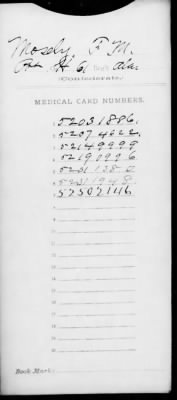 Mosely, F. M.
Co. H 61 Reg't Ala.
(Confederate.)
MEDICAL CARD NUMBERS.
1 52031886.
2 52074622.
3 52149999
4 52190996
5 52311380
6 52311948
7 57507146
8
9
10
11
12
13
14
15
16
17
18
19
20
Book Mark: